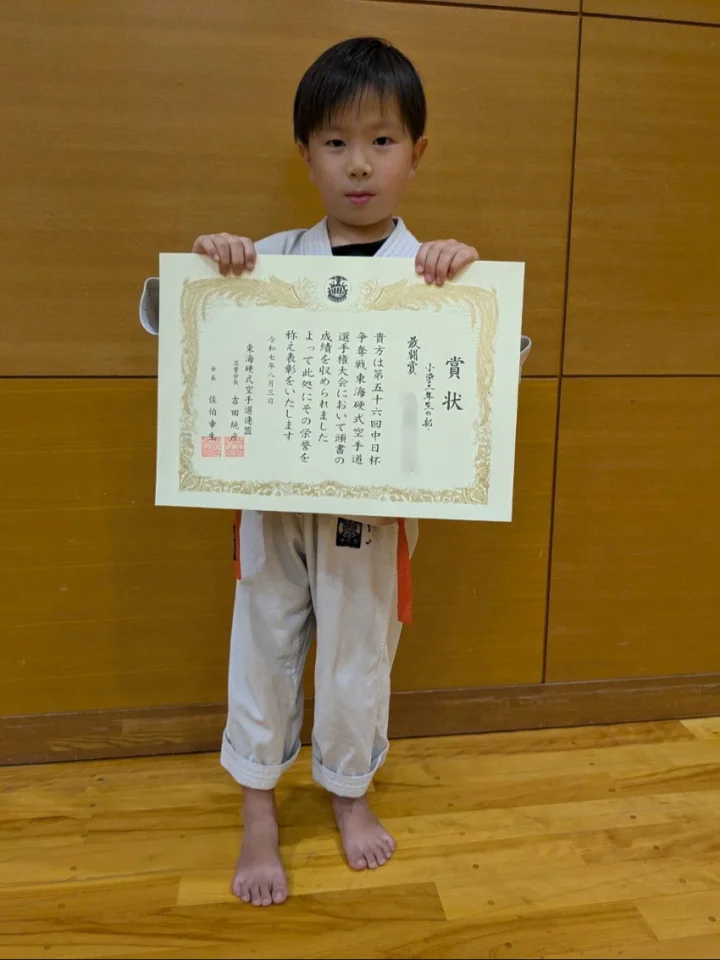 賞状
小学二年生の部
敢闘賞
貴方は第五十六回中日杯
争奪戦東海硬式空手道
選手権大会において頭書の
成績を収められました
よって此処にその栄誉を
称え表彰をいたします
令和七年八月三日
東海硬式空手道連盟
名誉会長 吉田純彦
会長 佐伯幸生